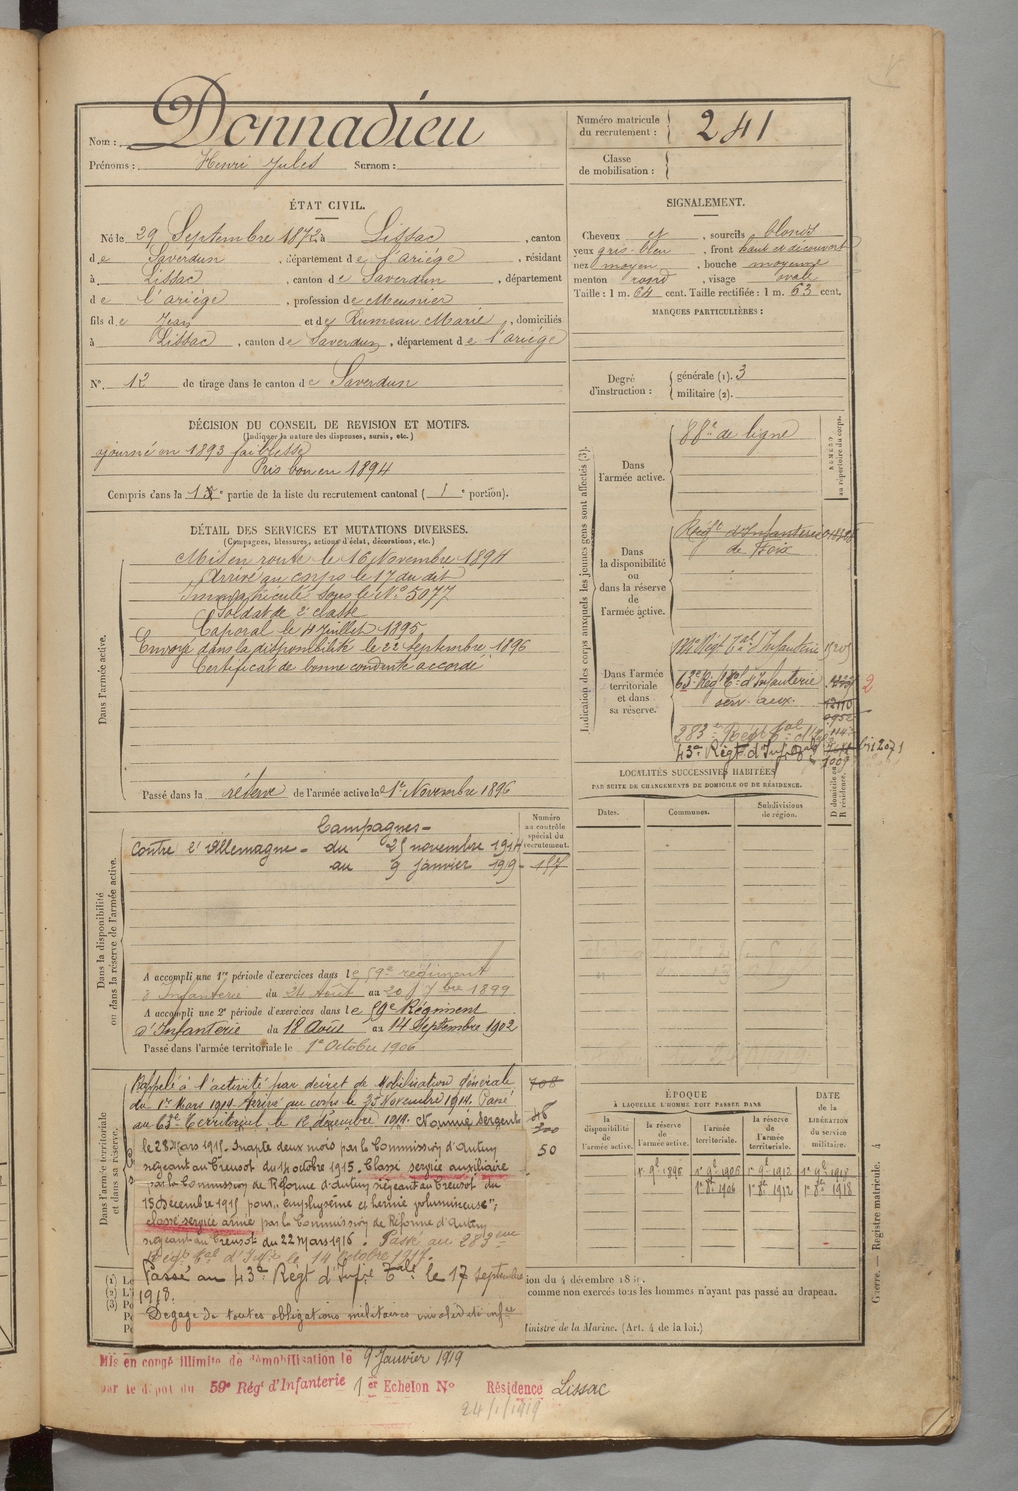 Nom : Donnadieu
Prénoms : Henri Jules Surnom :
Numéro matricule du recrutement : 241
Classe de mobilisation :
ÉTAT CIVIL.
Né le 29 Septembre 1872, à Lissac, canton
de Saverdun, département de l'ariège, résidant
à Lissac, canton de Saverdun, département
de l'ariège, profession de Meunier
fils de Jean et de Rumeau Marie, domiciliés
à Lissac, canton de Saverdun, département de l'ariège
N° 12 de tirage dans le canton de Saverdun
SIGNALEMENT.
Cheveux et, sourcils blonds
yeux gris-bleu, front haut et découvert
nez moyen, bouche moyenne
menton rond, visage ovale
Taille : 1 m. 64 cent. Taille rectifiée : 1 m. 63 cent.
MARQUES PARTICULIÈRES :
Degré d'instruction : générale (1). 3
militaire (2).
DÉCISION DU CONSEIL DE REVISION ET MOTIFS.
(Indiquer la nature des dispenses, sursis, etc.)
ajourné en 1893 faiblesse
Pris bon en 1894
Compris dans la 1e partie de la liste du recrutement cantonal ( 1 e portion).
DÉTAIL DES SERVICES ET MUTATIONS DIVERSES.
(Campagnes, blessures, actions d'éclat, décorations, etc.)
Dans l'armée active.
Mis en route le 16 Novembre 1894
Arrivé au corps le 17 du dit
Immatriculé sous le N° 5077
Soldat de 2e classe
Caporal le 4 Juillet 1895
Envoyé dans la disponibilité le 22 septembre 1896
Certificat de bonne conduite accordé
Passé dans la réserve de l'armée active le 1er Novembre 1896
Indication des corps auxquels les jeunes gens sont affectés (3).
NUMÉRO au répertoire du corps.
Dans l'armée active.
88e de ligne
Dans la disponibilité ou dans la réserve de l'armée active.
Régt d'Infanterie
de Foix
Dans l'armée territoriale et dans sa réserve.
Régt Tal d'Infanterie
63e Régt Tal d'Infanterie
serv. aux.
283e Régt Tal d'Inf
43e Régt d'Inf Tal
2
LOCALITÉS SUCCESSIVES HABITÉES
PAR SUITE DE CHANGEMENTS DE DOMICILE OU DE RÉSIDENCE.
Dates. Communes. Subdivisions de région. D domicile ou R résidence.
Dans la disponibilité ou dans la réserve de l'armée active.
Numéro au contrôle spécial du recrutement.
Campagnes
Contre l'Allemagne - du 25 novembre 1914
au 9 janvier 1919
157
A accompli une 1re période d'exercices dans le 59e régiment
d'Infanterie du 24 Août au 20 7bre 1899
A accompli une 2e période d'exercices dans le 59e Régiment
d'Infanterie du 18 Août au 14 Septembre 1902
Passé dans l'armée territoriale le 1er Octobre 1906
Dans l'armée territoriale et dans sa réserve.
Rappelé à l'activité par décret de Mobilisation Générale
du 1er Mars 1914. Arrivé au corps le 25 Novembre 1914. Passé
au 63e Territorial le 12 décembre 1914. Nommé Sergent
le 28 Mars 1915. Inapte deux mois par la Commission d'Autun
siégeant au Creusot du 14 octobre 1915. Classé service auxiliaire
par la Commission de Réforme d'Autun siégeant au Creusot du
15 Décembre 1915 pour "emphysème et hernie volumineuse";
classé service armé par la Commission de Réforme d'Autun
siégeant au Creusot du 22 Mars 1916. Passé au 283eme
Régt Tal d'Infie le 14 Octobre 1917.
Passé au 43e Régt d'Infie Tale le 17 septembre
1918.
Dégagé de toutes obligations militaires
708
46
200
50
ÉPOQUE
À LAQUELLE L'HOMME DOIT PASSER DANS
la disponibilité de l'armée active. la réserve de l'armée active. l'armée territoriale. la réserve de l'armée territoriale.
DATE de la LIBÉRATION du service militaire.
1er 9e 1896 1er 9e 1906 1er 9e 1912 1er 9e 1918
1er 8e 1906 1er 8e 1912 1er 8e 1918
(1)
(2)
(3)
ion du 4 décembre 18
comme non exercés tous les hommes n'ayant pas passé au drapeau.
Ministre de la Marine. (Art. 4 de la loi.)
Guerre. — Registre matricule. 4
Mis en congé illimité de démobilisation le 9 Janvier 1919
par le dépôt du 59e Régt d'Infanterie 1er Echelon N° Résidence Lissac
24/1/1919